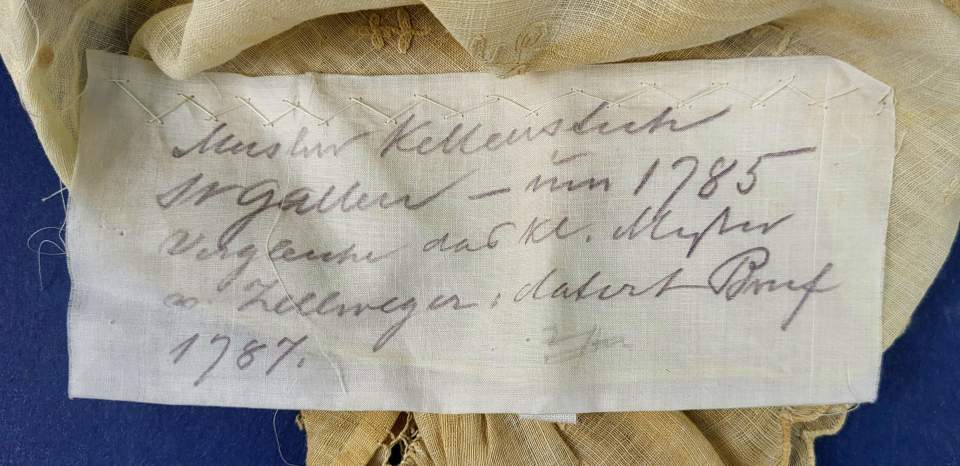 Muster Kettenstich
St Gallen – um 1785
Vergleiche das kl. Muster
v. Zellweger, datiert Brief
1787.